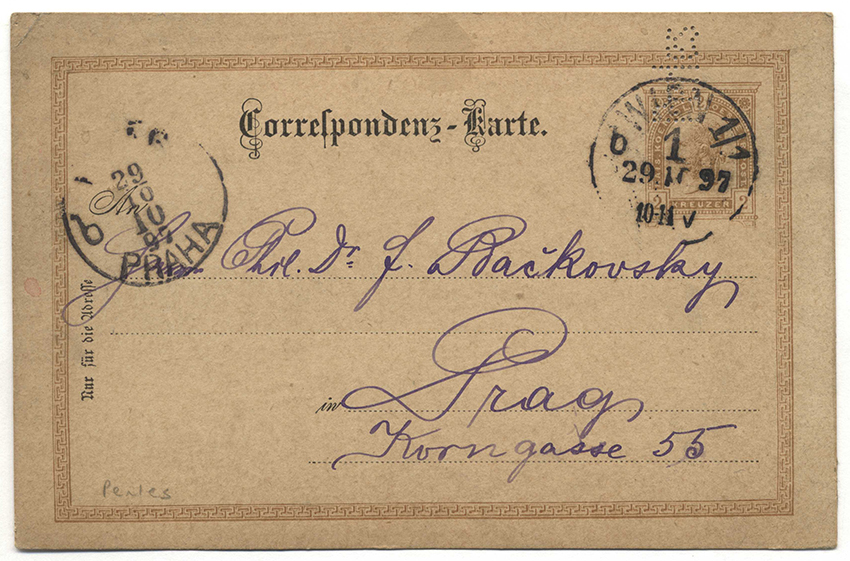 Correspondenz-Karte.
WIEN 1/1
1
29.10.97
10-11 V
2 KREUZER 2
29
10
97
PRAHA
An
Herrn Phil. Dr. F. Bačkovsky
in Prag
Korngasse 55
Nur für die Adresse
Perles